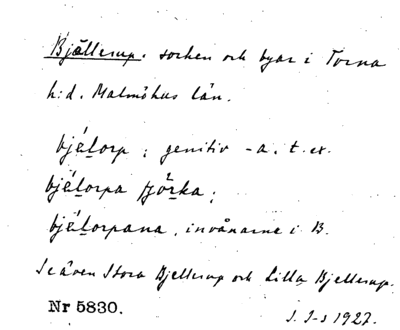 Bjällerup. socken och byar i Torna
h:d. Malmöhus län.
bjélorp; genitiv -a. t. ex.
bjélorpa
bjélorpana, invånarne i B.
Se även Stora Bjellerup och Lilla Bjellerup.
Nr 5830.
1927.